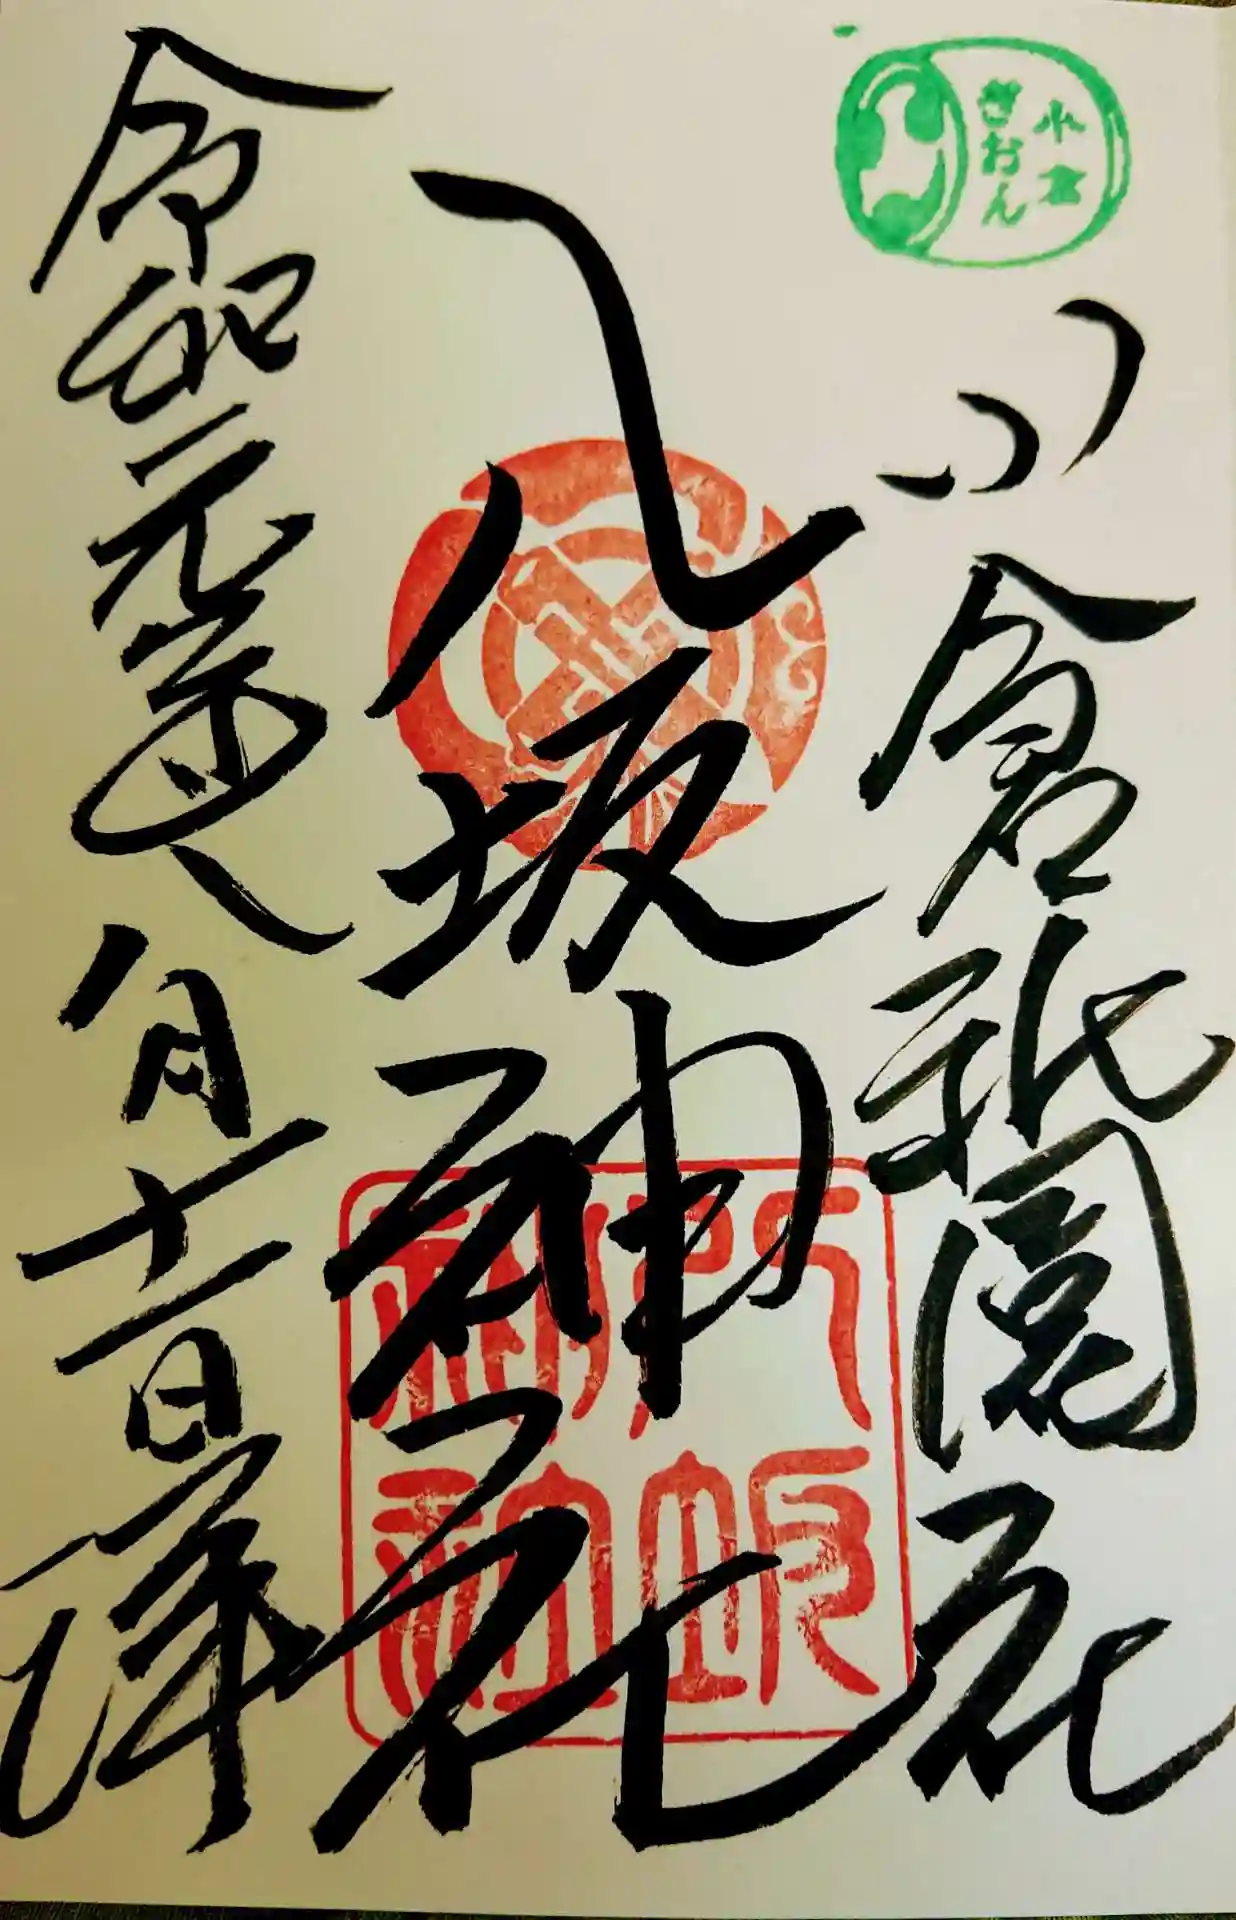 小倉
ぎおん
小倉祇園社
八坂神社
八坂
神社
令和元年
八月十一日拝